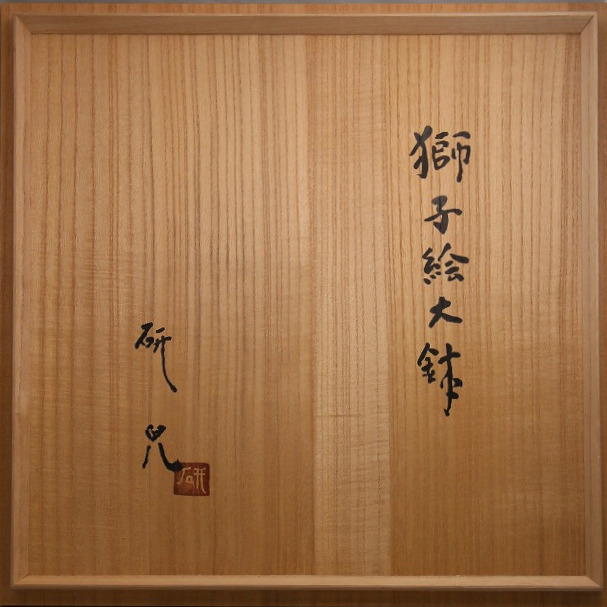 獅子絵大鉢
研児
研